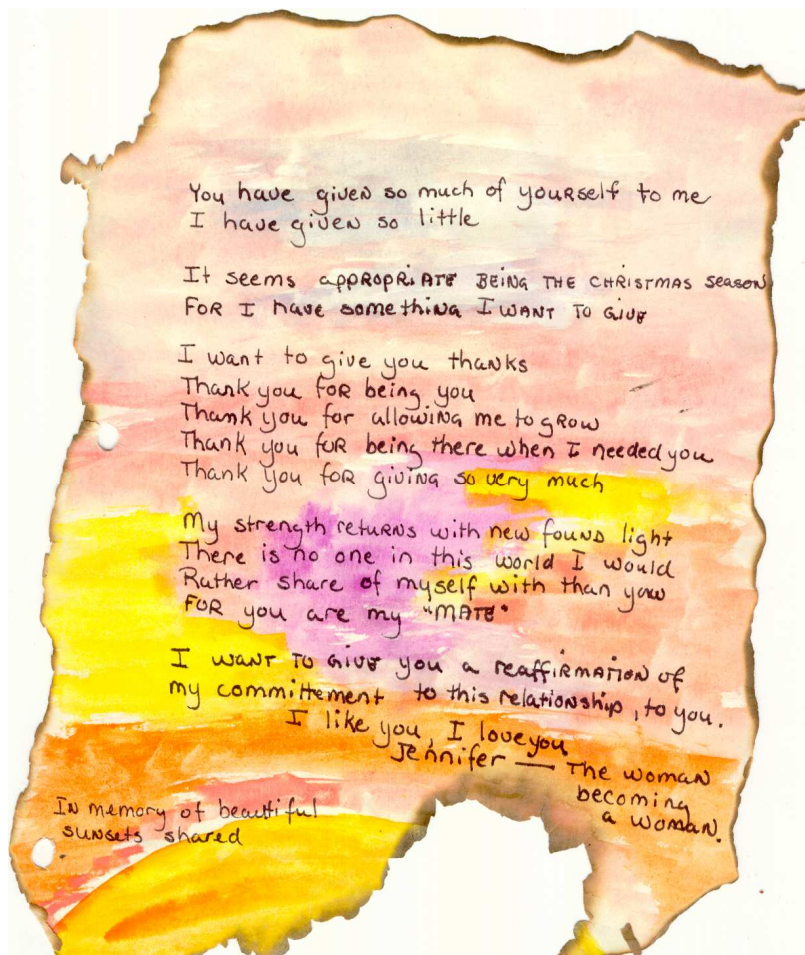 You have given so much of yourself to me
I have given so little
It seems appropriate being the Christmas season
For I have something I want to give
I want to give you thanks
Thank you for being you
Thank you for allowing me to grow
Thank you for being there when I needed you
Thank you for giving so very much
My strength returns with new found light
There is no one in this world I would
Rather share of myself with than you
For you are my "MATE"
I want to give you a reaffirmation of
my committement to this relationship, to you.
I like you, I love you
Jennifer — The woman
becoming
a woman.
In memory of beautiful
sunsets shared